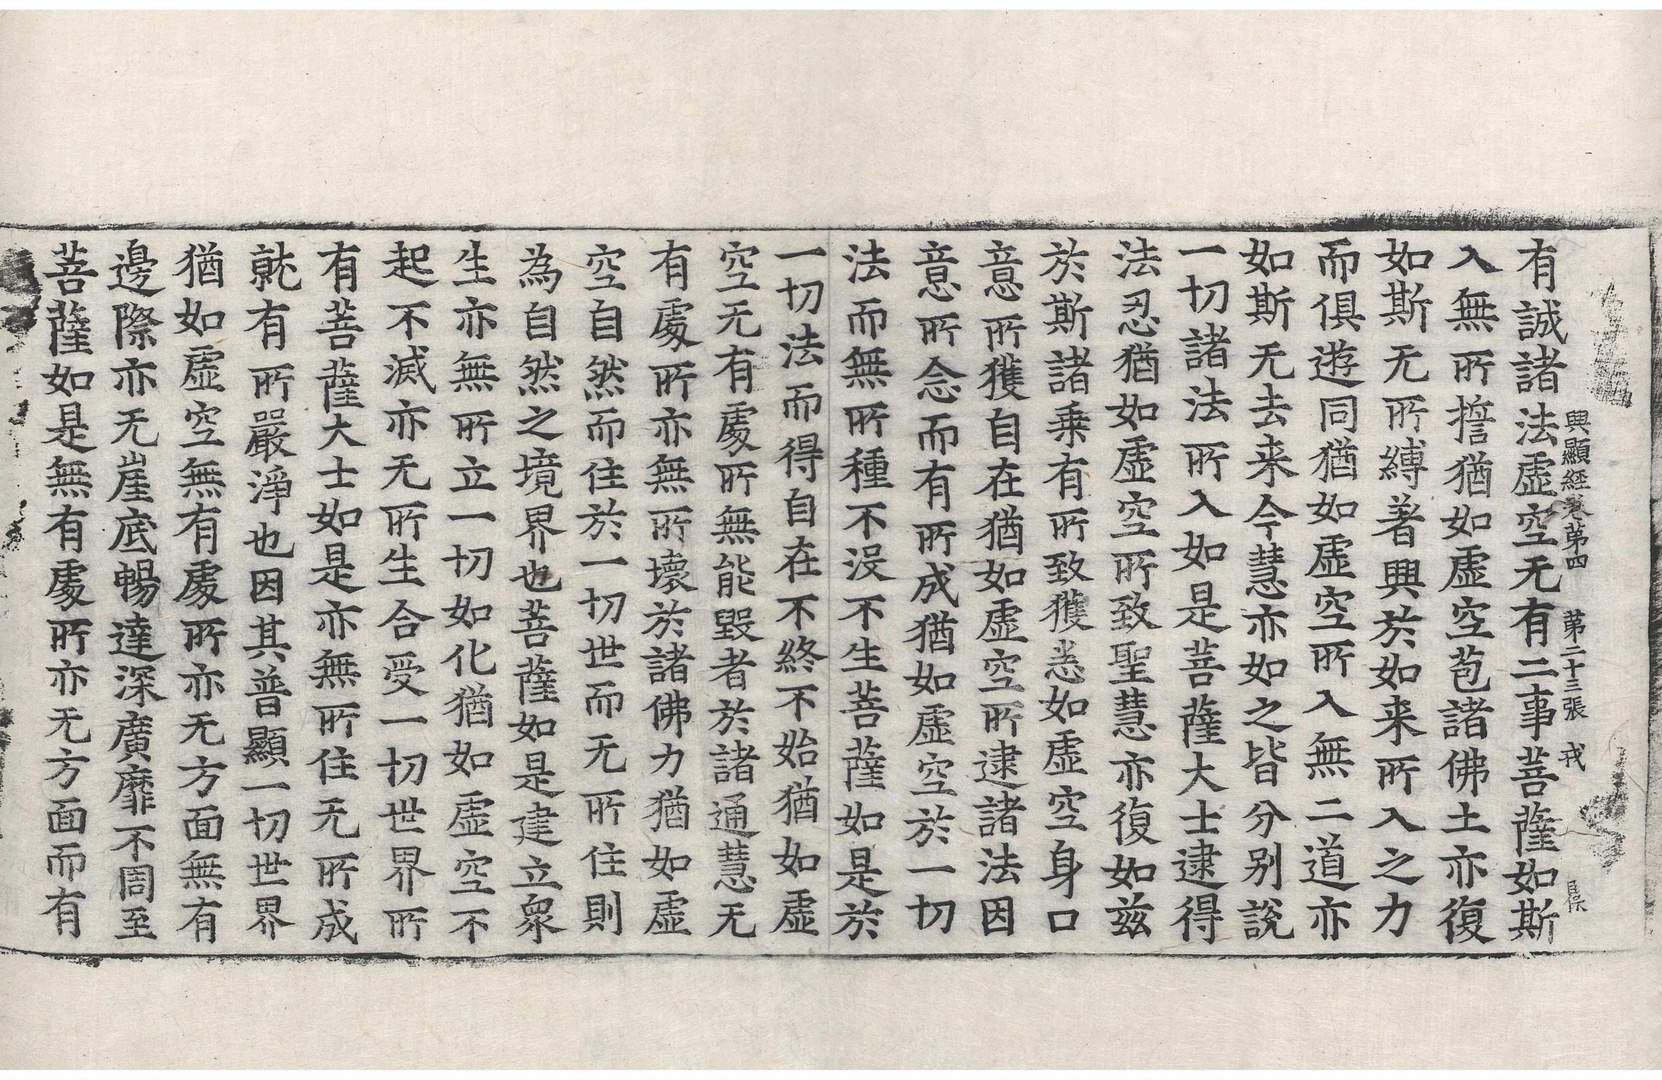 興顯經卷第四 第二十三張 戎
有誠諸法虛空无有二事菩薩如斯
入無所㨗猶如虛空苞諸佛土亦復
如斯无所縛著興於如来所入之力
而俱遊同猶如虛空所入無二道亦
如斯无去来今慧亦如之皆分別說
一切諸法所入如是菩薩大士逮得
法忍猶如虛空所致聖慧亦復如茲
於斯諸乗有所致獲悉如虛空身口
意所獲自在猶如虛空所逮諸法因
意所念而有所成猶如虛空於一切
法而無所種不沒不生菩薩如是於
一切法而得自在不終不始猶如虛
空无有處所無能毀者於諸通慧无
有處所亦無所壞於諸佛力猶如虛
空自然而住於一切世而无所住則
為自然之境界也菩薩如是建立衆
生亦無所立一切如化猶如虛空不
起不滅亦无所生合受一切世界所
有菩薩大士如是亦無所住无所成
就有所嚴淨也因其普顯一切世界
猶如虛空無有處所亦无方面無有
邊際亦无崖底暢達深廣靡不周至
菩薩如是無有處所亦无方面而有